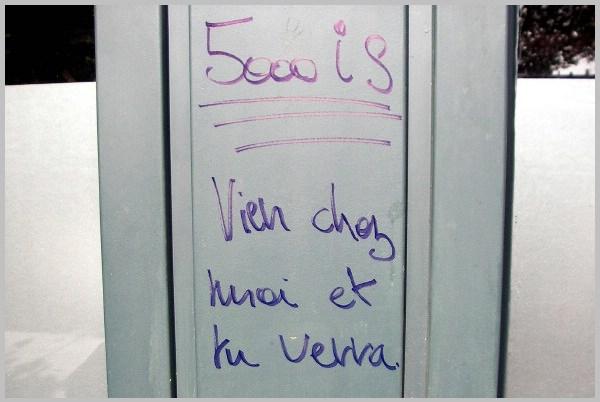 5000 is
Vien chez
moi et
tu verra.